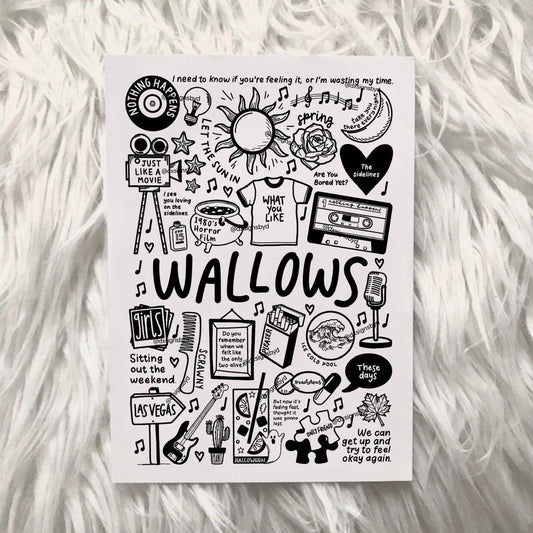 I need to know if you're feeling it, or I'm wasting my time.
NOTHING HAPPENS
@dzsignsbyd
LET THE SUN IN
spring
take you
there every night
JUST
LIKE A
MOVIE
@dzsignsbyd
Are You
Bored Yet?
The
sidelines
I see
you loving
on the
sidelines.
1980's
Horror
Film
WHAT
YOU
LIKE
nothing happens
WALLOWS
girls
SCRAWNY
Do you
remember
when we
felt like
the only
two alive?
ICE COLD POOL
Sitting
out the
weekend.
These
days
LAS VEGAS
But now it's
feeling fast,
thought it
was gonna
last.
HALLOWEEN
ONLY FRIEND
We can
get up and
try to feel
okay again.